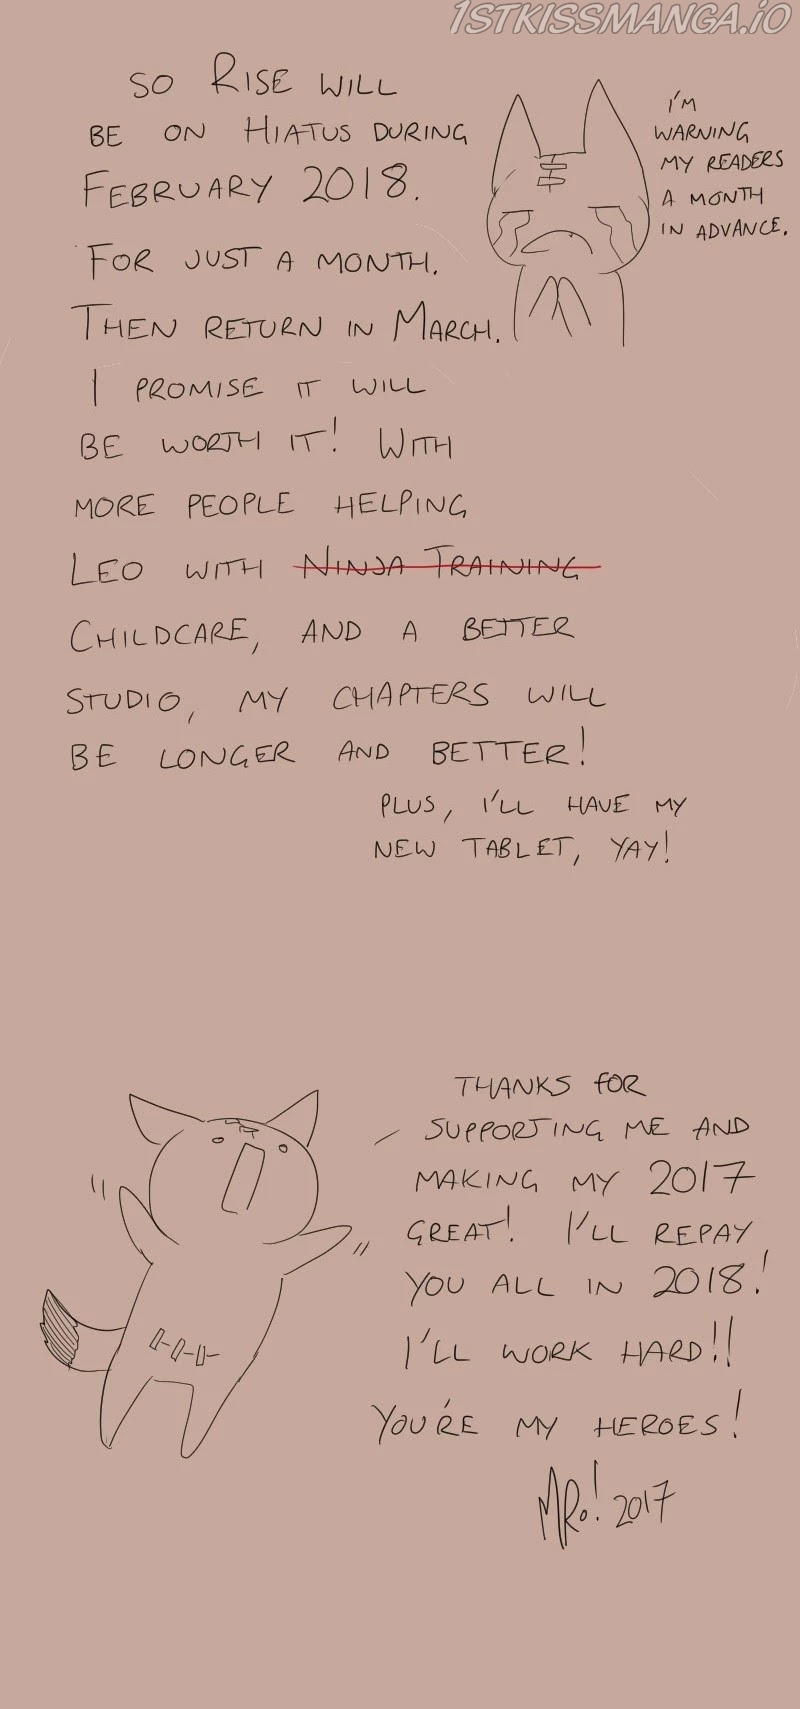 1STKISSMANGA.IO
SO RISE WILL
BE ON HIATUS DURING
FEBRUARY 2018.
FOR JUST A MONTH.
THEN RETURN IN MARCH.
I PROMISE IT WILL
BE WORTH IT! WITH
MORE PEOPLE HELPING
LEO WITH NINJA TRAINING
CHILDCARE, AND A BETTER
STUDIO, MY CHAPTERS WILL
BE LONGER AND BETTER!
I'M
WARNING
MY READERS
A MONTH
IN ADVANCE.
PLUS, I'LL HAVE MY
NEW TABLET, YAY!
THANKS FOR
SUPPORTING ME AND
MAKING MY 2017
GREAT! I'LL REPAY
YOU ALL IN 2018!
I'LL WORK HARD!!
YOU'RE MY HEROES!
MRo! 2017